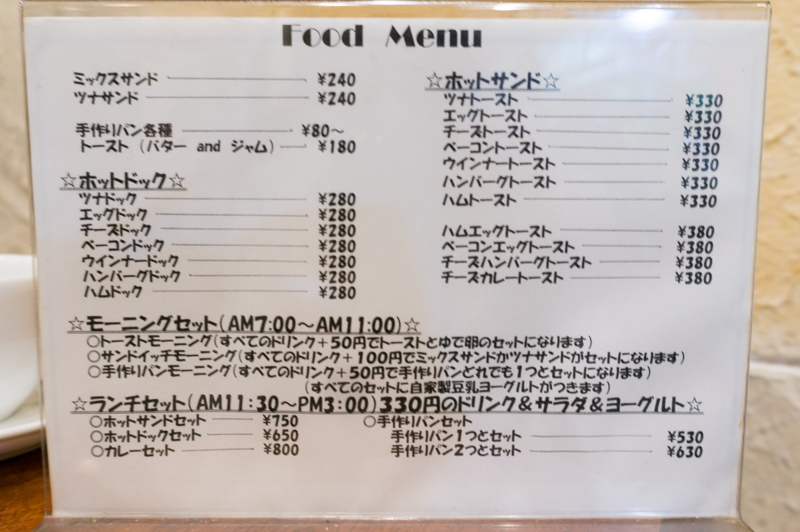 Food Menu
ミックスサンド ¥240
ツナサンド ¥240
手作りパン各種 ¥80〜
トースト (バター and ジャム) ¥180
☆ホットドック☆
ツナドック ¥280
エッグドック ¥280
チーズドック ¥280
ベーコンドック ¥280
ウインナードック ¥280
ハンバーグドック ¥280
ハムドック ¥280
☆ホットサンド☆
ツナトースト ¥330
エッグトースト ¥330
チーズトースト ¥330
ベーコントースト ¥330
ウインナートースト ¥330
ハンバーグトースト ¥330
ハムトースト ¥330
ハムエッグトースト ¥380
ベーコンエッグトースト ¥380
チーズハンバーグトースト ¥380
チーズカレートースト ¥380
☆モーニングセット(AM7:00〜AM11:00)☆
○トーストモーニング(すべてのドリンク+50円でトーストとゆで卵のセットになります)
○サンドイッチモーニング(すべてのドリンク+100円でミックスサンドかツナサンドがセットになります)
○手作りパンモーニング(すべてのドリンク+50円で手作りパンどれでも1つとセットになります)
(すべてのセットに自家製豆乳ヨーグルトがつきます)
☆ランチセット(AM11:30〜PM3:00)330円のドリンク&サラダ&ヨーグルト☆
○ホットサンドセット ¥750
○ホットドックセット ¥650
○カレーセット ¥800
○手作りパンセット
手作りパン1つとセット ¥530
手作りパン2つとセット ¥630